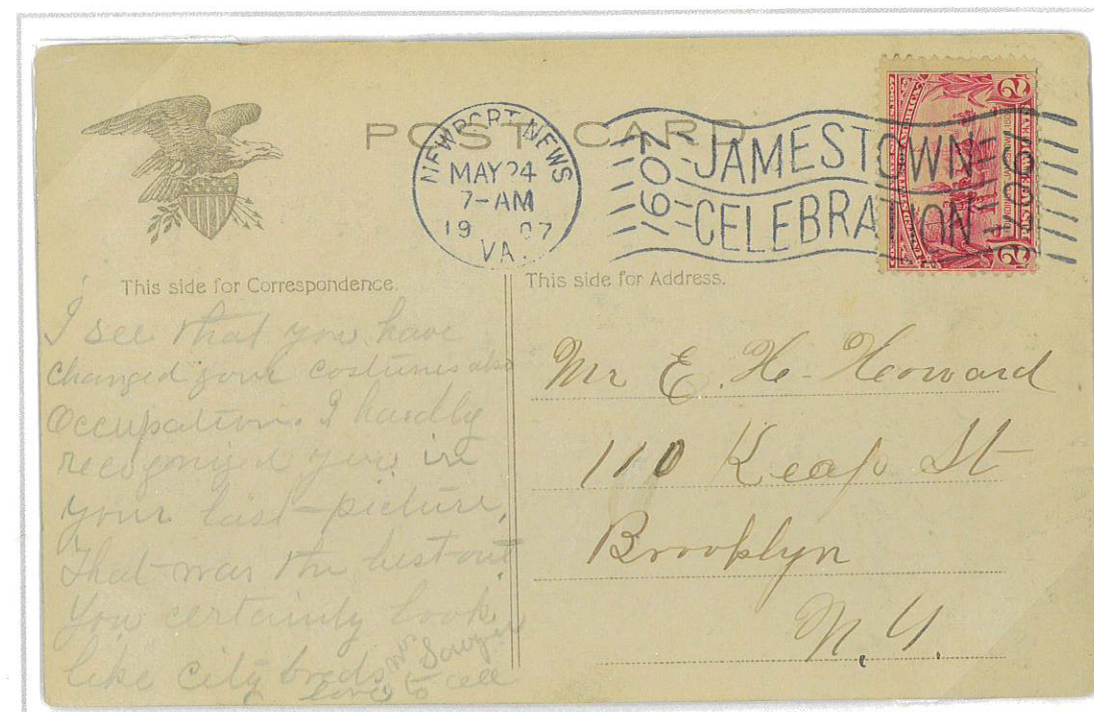 POST CARD
NEWPORT NEWS
MAY 24
7-AM
1907
VA.
1607 JAMESTOWN 1907
CELEBRATION
2 2
This side for Correspondence.
I see that you have
changed your costumes also
Occupation. I hardly
recognized you in
your last picture,
That was the best out
You certainly look
like City
love to all
This side for Address.
Mr E. H. Howard
110 Keap St
Brooklyn
N.Y.